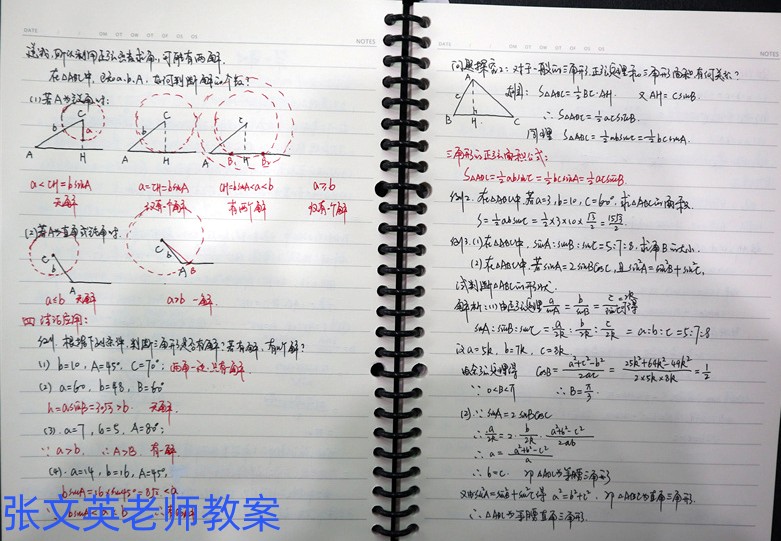 DATE
NOTES
在△ABC中,已知a.b.A,如何判断解的个数?
(1)若A为锐角时:
C
b
a
A
H
C
b
A
H
C
A
B
H
B
a<CH=bsinA
无解
a=CH=bsinA
仅有一个解
CH=bsinA<a<b
有两个解
a≥b
仅有一个解
(2)若A为直角或钝角时.
C
b
A
C
b
A
B
a≤b 无解
a>b 一解.
四
例1. 根据下列条件,判断三角形是否有解?若有解,有几个解?
(1) b=10, A=45°, C=70°;
(2). a=60, b=48, B=60°
h=asinB=30√3>b. 无解.
(3). a=7, b=5, A=80°;
∵ a>b. ∴ A>B. 有一解
(4). a=14, b=16, A=45°,
bsinA=16×sin45°=8√2<a
张文英老师教案
DATE
NOTES
问题探究2:对于一般的三角形,正弦定理和三角形面积有何关系?
A
c
h
B
H
C
S△ABC=½BC·AH. 又AH=csinB.
∴ S△ABC=½acsinB.
同理 S△ABC=½absinC=½bcsinA.
三角形的正弦面积公式:
S△ABC=½absinC=½bcsinA=½acsinB.
例2. 在△ABC中,若a=3,b=10,C=60°.求△ABC的面积.
S=½absinC=½×3×10×√3/2=15√3/2
例3.(1)在△ABC中, sinA:sinB:sinC=5:7:8.求角B的大小.
(2)在△ABC中,若sinA=2sinBcosC,且sin²A=sin²B+sin²C,
试判断△ABC的形状.
解析:(1)由正弦定理a/sinA=b/sinB=c/sinC=2R得
sinA:sinB:sinC=a/2R:b/2R:c/2R=a:b:c=5:7:8
设a=5k, b=7k, c=8k.
由余弦定理得 cosB=(a²+c²-b²)/2ac=(25k²+64k²-49k²)/(2×5k×8k)=1/2
∵ 0<B<π ∴ B=π/3
(2).∵ sinA=2sinBcosC
∴ a/2R=2·b/2R·(a²+b²-c²)/2ab
∴ a=(a²+b²-c²)/a
∴ b=c. 即△ABC为等腰三角形
又由sin²A=sin²B+sin²C得 a²=b²+c². 即△ABC为直角三角形.
∴ △ABC为等腰直角三角形.